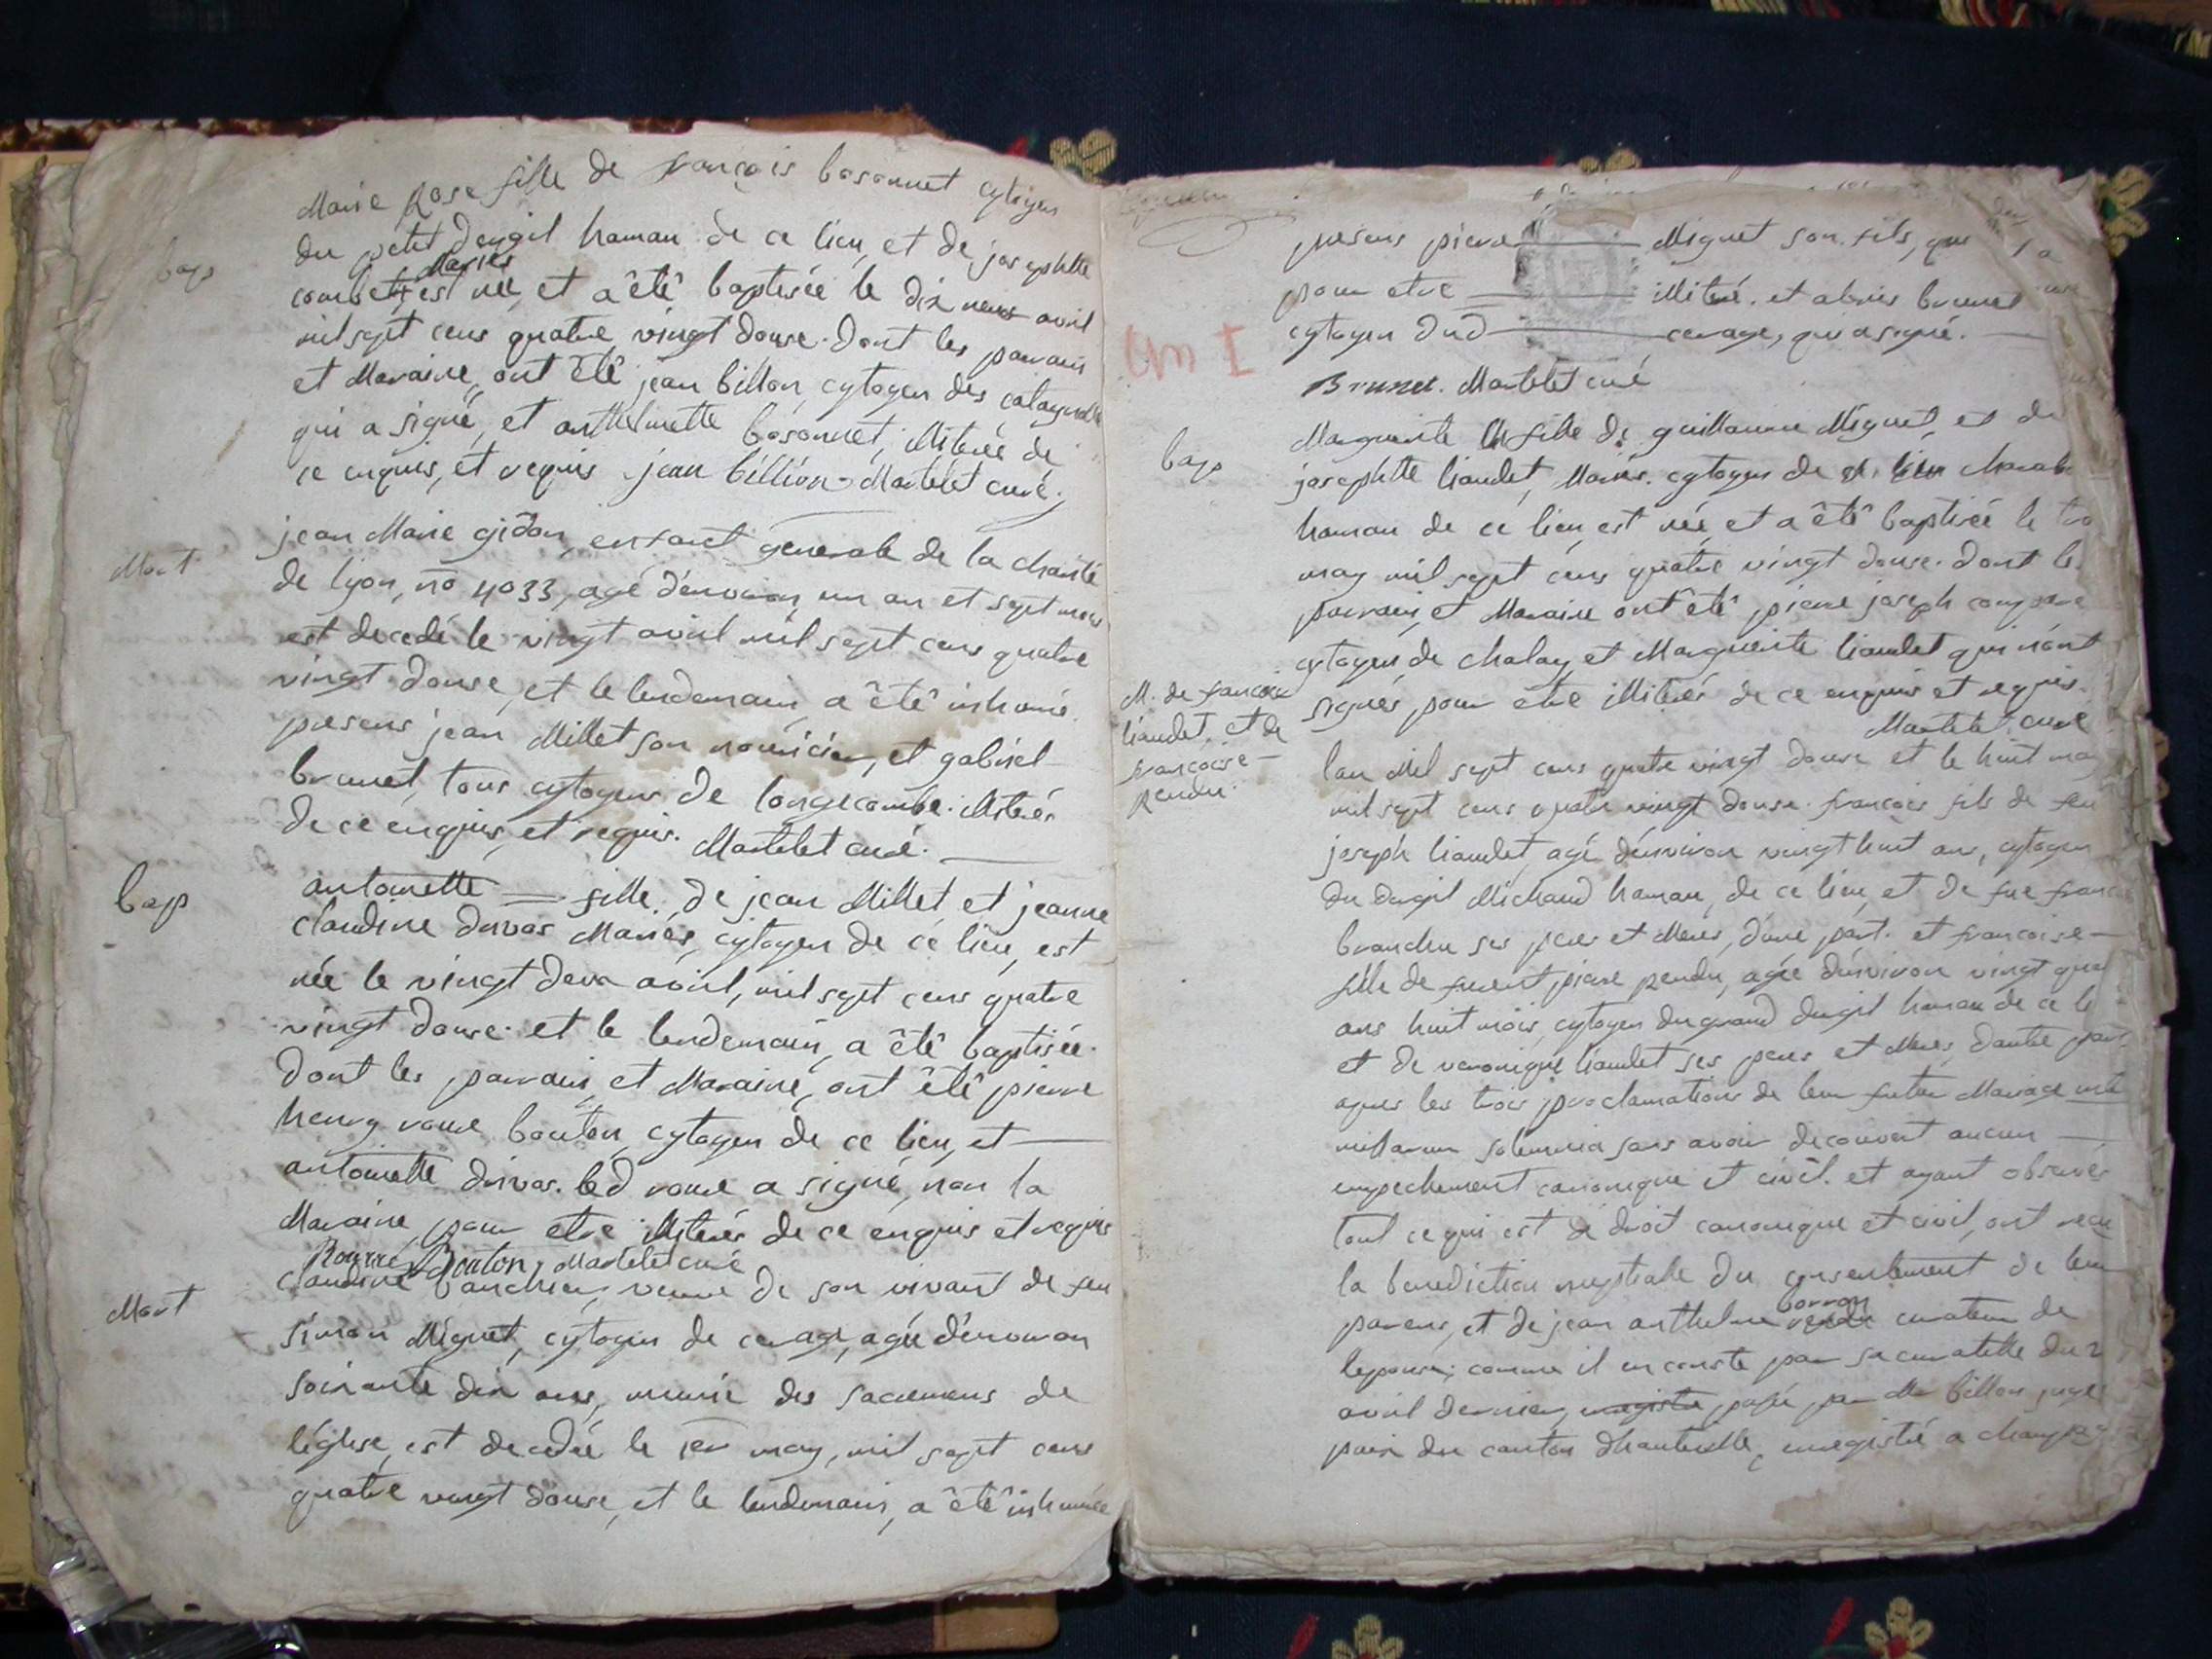 bap
Marie Rose fille de francois bosonnet cytoyen
du petit dergil hamau de ce lieu, et de josephtte
Mariés
combet, est née, et a êtê baptisée le dix neuf avril
mil sept cens quatre vingt douse. dont les parrain
et Maraine, ont êtê jean billion, cytoyen des
qui a signé, et anthelmette bosonnet, illiterée de
ce enquis, et requis. jean billion Martelet curé.
Mort
jean Marie gidon, enfant generale de la charité
de lyon, no 4033, agé d'environ, un an et sept mois
est decedé le vingt avril mil sept cens quatre
vingt douse, et le lendemain, a êtê inhumé.
presens jean Millet son nouricier, et gabriel
brunet, tous cytoyens de longecombe. illiterés
de ce enquis, et requis. Martelet curé.
bap
antoinette fille de jean Millet, et jeanne
claudine durvas Mariés, cytoyen de ce lieu, est
née le vingt deux avril, mil sept cens quatre
vingt douse. et le lendemain, a êtê baptisée.
dont les parrain, et Maraine, ont êtê pierre
henry roux bouton, cytoyen de ce lieu, et
antoinette durvas. led roux a signé, non la
Maraine, pour etre illiterés de ce enquis et requis
Bouton, Martelet curé
Mort
claudine banchieu, veuve de son vivant de feu
simon Miguet, cytoyen de cevage, agée d'environ
soixante dix ans, munie des sacremens de
l'église, est decedée le 1er may, mil sept cens
quatre vingt douse, et le lendemain, a êtê inhumée
presens pierre Miguet son fils, qui
pour etre illiteré. et alexis brunet
cytoyen dud cevage, qui a signé.
an I
Brunet. Martelet curé
bap
Marguerite fille de guillaume Miguet, et de
josephtte liaudet, Mariés. cytoyen de
hamau de ce lieu, est née, et a êtê baptisée le
may mil sept cens quatre vingt douse. dont le
parrain, et Maraine ont êtê, pierre joseph
cytoyen de chaley, et Marguerite liaudet qui n'ont
signés, pour etre illiterés de ce enquis et requis.
Martelet curé
M. de francois
liaudet, et de
francoise
pendu.
lan Mil sept cens quatre vingt douse et le huit may
mil sept cens quatre vingt douse. francois fils de feu
joseph liaudet, agé d'environ vingt huit ans, cytoyen
du dergil Michaud hamau, de ce lieu, et de fue
branche ses peres et Meres, d'une part. et francoise
fille de pierre pendu, agée d'environ vingt
ans huit mois, cytoyen du grand dergil hamau de ce
et de veronique liaudet ses peres et Meres, d'autre part
apres les trois proclamations de leur futur Mariage
missarum solemnia sans avoir decouvert aucun
empechement canonique et civil. et ayant observés
tout ce qui est de droit canonique et civil, ont recu
la benediction nuptiale du consentement de leur
borron
parens, et de jean anthelme curateur de
lepouse; comme il en conste par sa curatelle du
avril dernier, passée par Mr billon juge
paix du canton d'hauteville, enregistré a